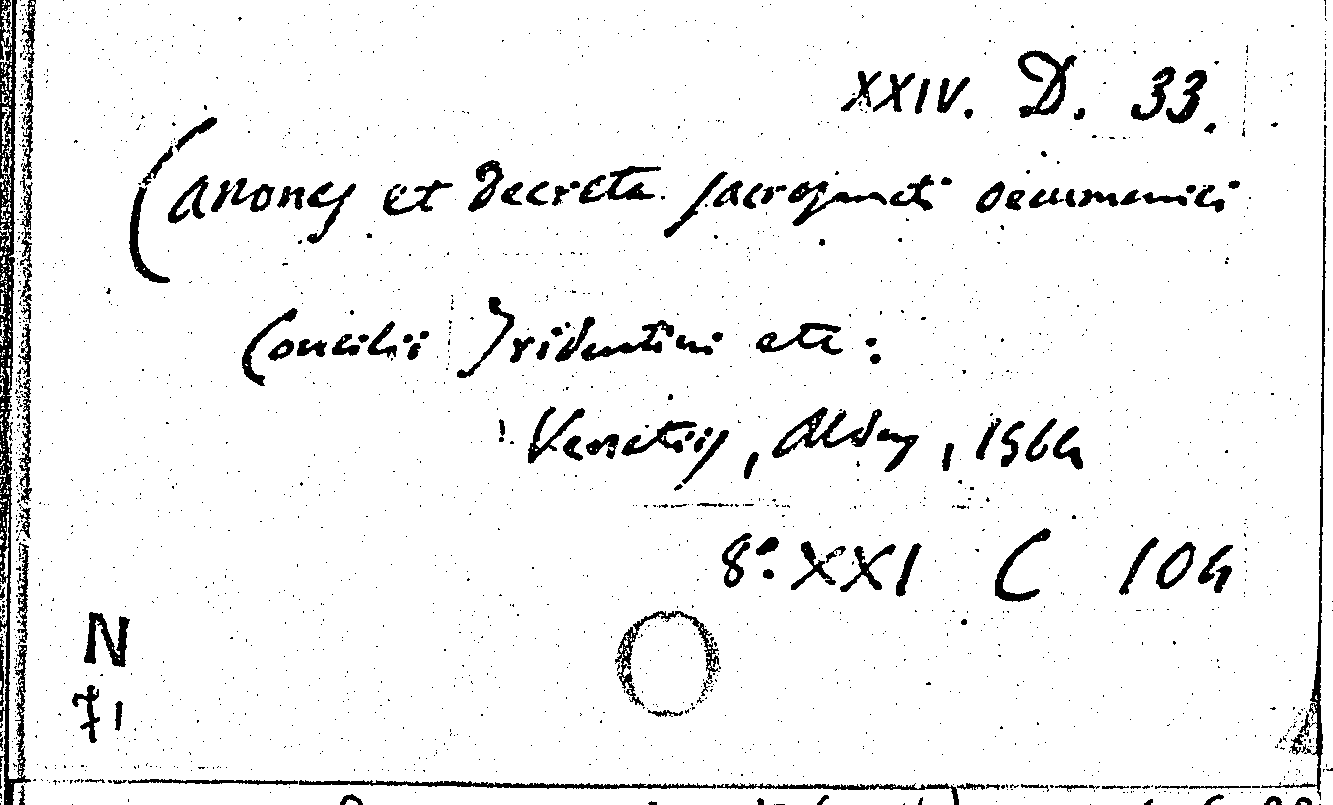 XXIV. D. 33.
Canones et Decreta sacrosancti oecumenici
Concilii Tridentini etc:
Venetiis, Aldus, 1564
8° XXI C 104
N
71